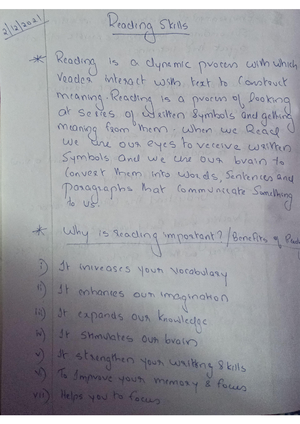 2/12/2021
Reading Skills
* Reading is a dynamic process with which
reader interact with text to construct
meaning. Reading is a process of looking
at series of written symbols and getting
meaning from them. When we Read
we use our eyes to receive written
Symbols and we use our brain to
Convert them into words, Sentences and
Paragraphs that communicate Something
to us.
* Why is reading important? / Benefits of
i) It increases your vocabulary
ii) It enhances our imagination
iii) It expands our knowledge
iv) It stimulates our brain
v) It strengthen your writing skills
vi) To Improve your memory & focus
vii) Helps you to focus